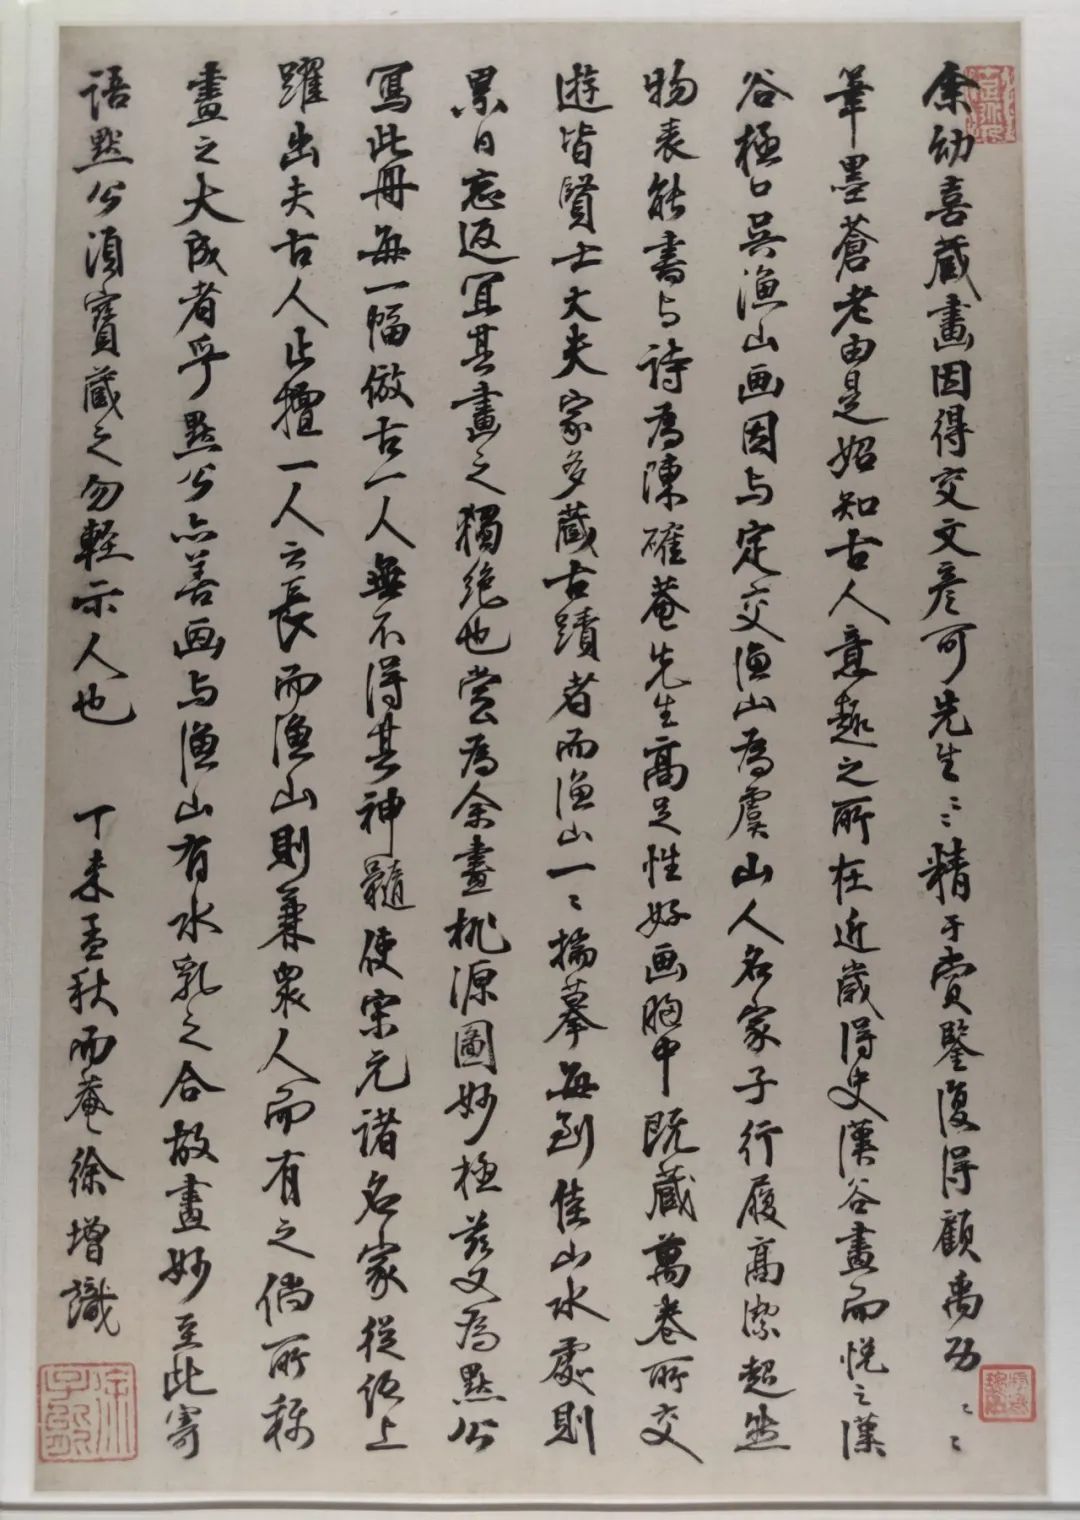 余幼喜藏畫因得交文彥可先生〻〻精于賞鑒復得顧禹功〻〻
筆墨蒼老由是始知古人意趣之所在近歲得史漢谷畫而悅之漢
谷極口吳漁山画因与定交漁山為虞山人名家子行履高潔超然
物表能書与詩為陳確菴先生高足性好画胸中既藏萬卷所交
遊皆賢士大夫家多藏古蹟者而漁山一〻揣摹每到佳山水處則
累日忘返冝其畫之獨絶也嘗為余畫桃源圖妙極茲又為默公
寫此冊每一幅倣古一人無不得其神髓使宋元諸名家從紙上
躍出夫古人止擅一人之長而漁山則兼衆人而有之倘所稱
畫之大成者乎默公亦善画与漁山有水乳之合故畫妙至此寄
語默公須寳藏之勿輕示人也 丁未孟秋而菴徐增識
徐增
子能